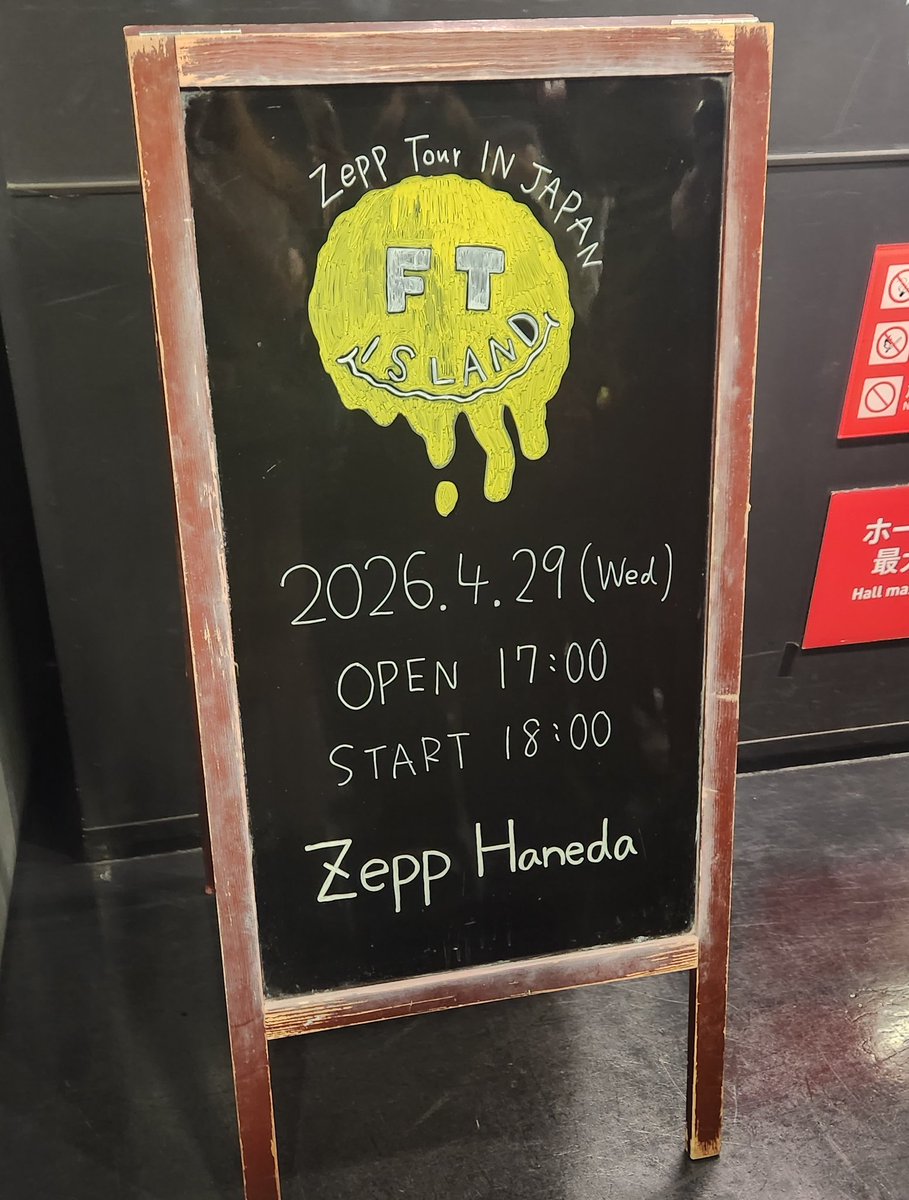 Zepp Tour IN JAPAN
FT
ISLAND
2026.4.29 (Wed)
OPEN 17:00
START 18:00
Zepp Haneda
ホー
最
Hall